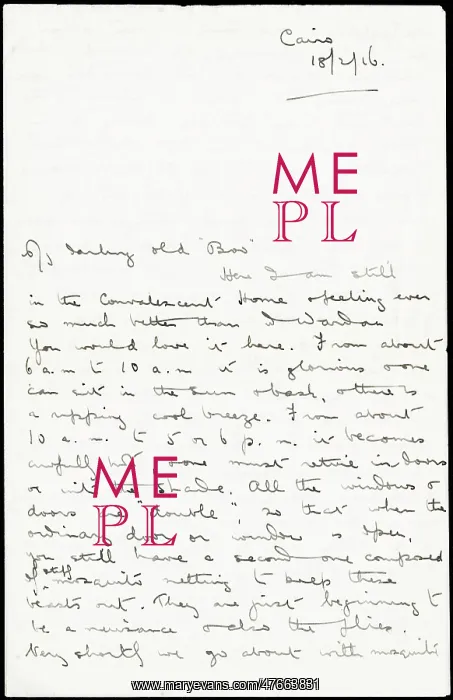 Cairo
18/2/16.
ME
PL
My darling old "Boo"
Here I am still
in the Convalescent Home & feeling ever
so much better than I was
You would love it here. From about
6 a.m to 10 a.m it is glorious & one
can sit in the sun & bask, & there is
a ripping cool breeze. From about
10 a.m. to 5 or 6 p.m. it becomes
awfully hot & one must retire indoors
or into the shade. All the windows &
ME
doors are "double", so that when the
PL
ordinary door or window is open,
you still have a second one composed
of stiff mosquito netting to keep these
beasts out. They are just beginning to
be a nuisance & also the flies.
Very shortly we go about with mosquito
www.maryevans.com/47663831